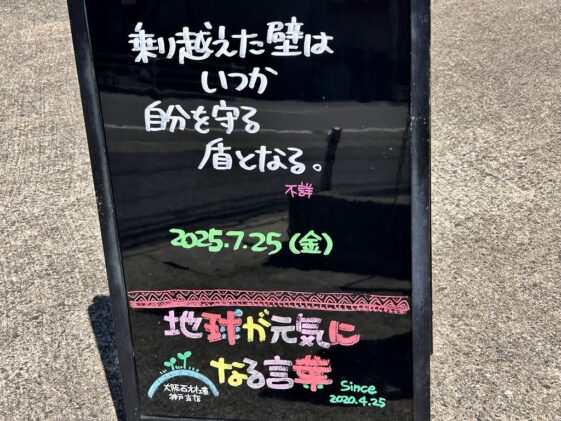 乗り越えた壁は
いつか
自分を守る
盾となる。
不詳
2025.7.25(金)
地球が元気に
なる言葉
大阪石材工業
神戸支店
Since
2020.4.25